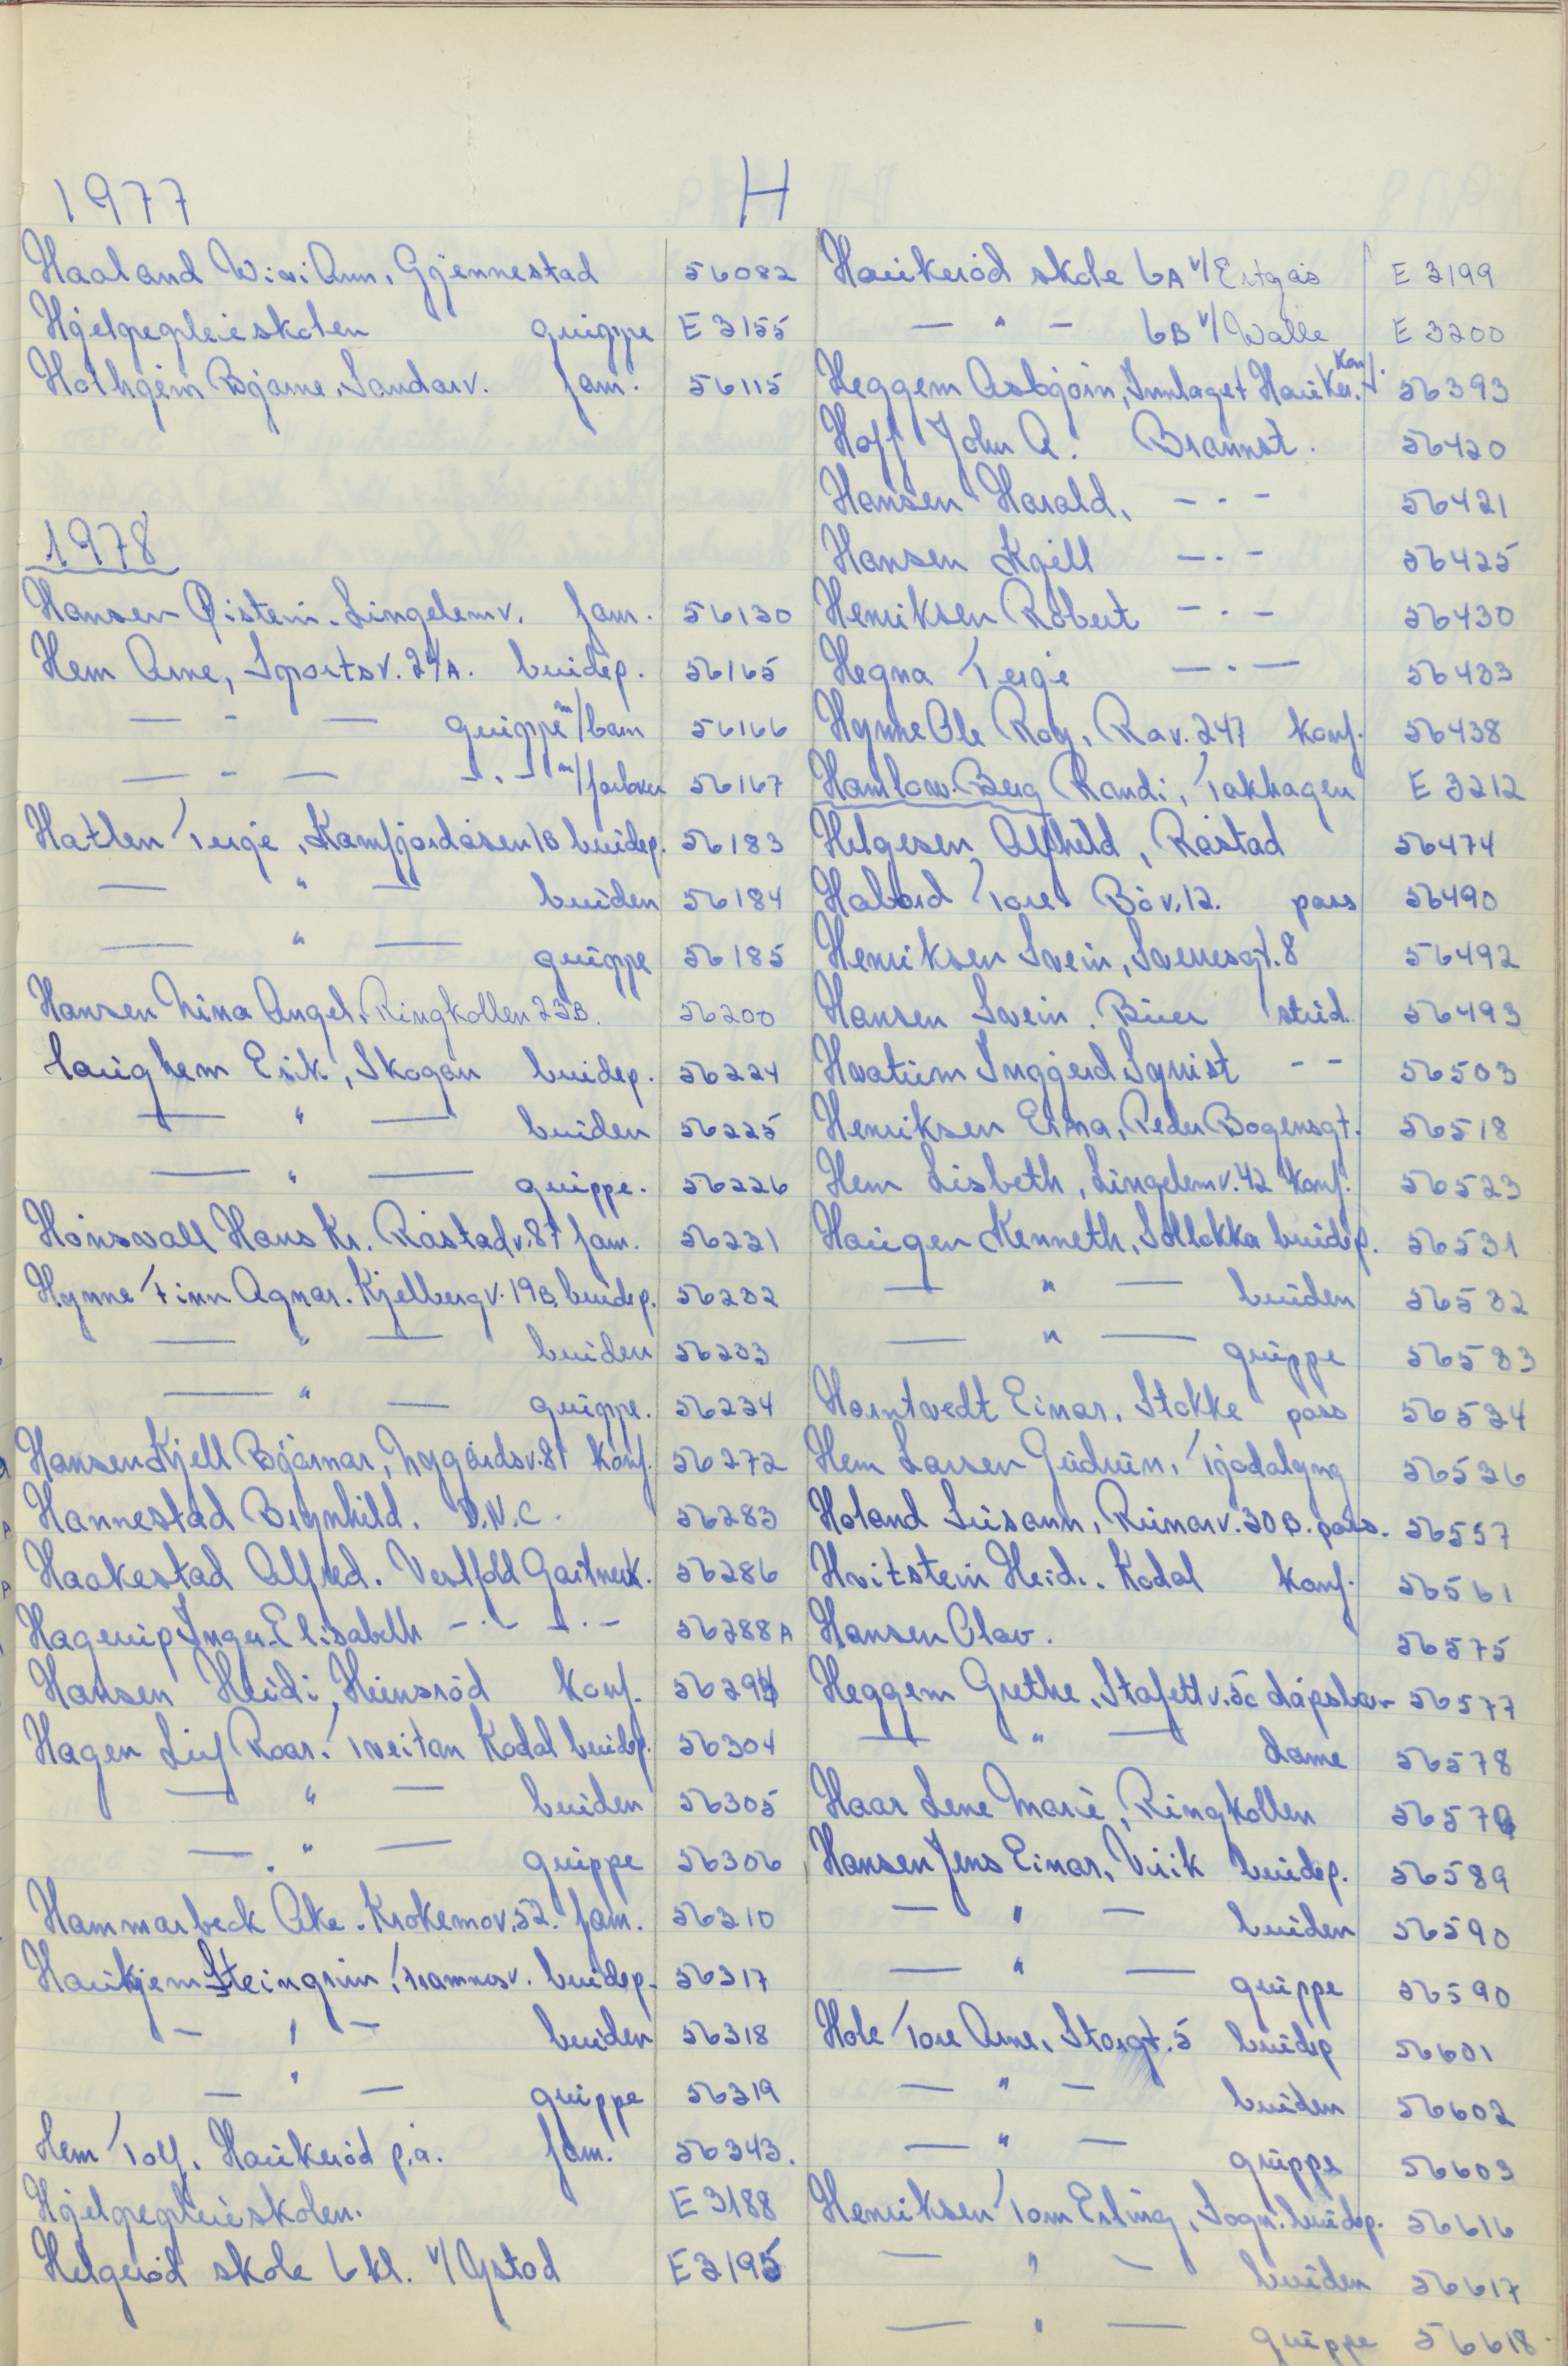 1977
H
Haaland Wivi Ann, Gjennestad 56082
Hjelpepleieskolen gruppe E 3155
Holhjem Bjarne, Sandarv. fam. 56115
1978
Hansen Øistein. Lingelemv. fam. 56130
Hem Arne, Sportsv. 24A. brudep. 56165
— - — gruppe m/barn 56166
— - — -.- m/forlover 56167
Hatlen Terje, Kamfjordåsen 18 brudep. 56183
— " — bruden 56184
— " — gruppe 56185
Hansen Nina Angel, Ringkollen 23B. 56200
Haughem Erik, Skogan brudep. 56224
— " — bruden 56225
— " — gruppe. 56226
Hønsvall Hans Kr. Råstadv. 87 fam. 56231
Hynne Finn Agnar. Kjellbergv. 19B brudep. 56232
— " — bruden 56233
— " — gruppe. 56234
Hansen Kjell Bjarnar, Nygårdsv. 81 konf. 56272
Hannestad Brynhild. D.N.C. 56283
Haakestad Alfred. Vestfold Gartnerk. 56286
Hagerup Inger-Elisabeth -.- -.- 56288A
Hansen Heidi, Heimsrød konf. 56294
Hagen Leif Roar. Tveitan Kodal brudep. 56304
— " — bruden 56305
— . " — gruppe 56306
Hammarbeck Åke. Krokemov. 52. fam. 56310
Haukjem Steingrim, Framnesv. brudep. 56317
— " — bruden 56318
— " — gruppe 56319
Hem Tolf, Haukerød p.å. fam. 56343.
Hjelpepleieskolen. E 3188
Helgerød skole 6 kl. v/Ystad E 3195
Haukerød skole 6A v/ Ertgås E 3199
— " — 6B v/ Walle E 3200
Heggem Asbjørn, Tunlaget Hauker. Konf. 56393
Hoff John A. Brannst. 56420
Hansen Harald, -.- 56421
Hansen Kjell -.- 56425
Henriksen Robert -.- 56430
Hegna Terje -.- 56433
Hynne Ole Roy, Rav. 247 konf. 56438
Hamlow-Berg Randi, Takhagen E 3212
Helgesen Alfhild, Råstad 56474
Håbård Tore Bøv. 12. pass 56490
Henriksen Svein, Sverresgt. 8 56492
Hansen Svein. Buer stud. 56493
Hvatum Inggjerd Synist - - 56503
Henriksen Erna, Peder Bogensgt. 56518
Hem Lisbeth, Lingelemv. 42 konf. 56523
Haugen Kenneth, Solløkka brudep. 56531
— " — bruden 56532
— " — gruppe 56533
Horntvedt Einar, Stokke pass 56534
Hem Larsen Gudrun, Tjodalyng 56536
Holand Liisann, Runarv. 30 B. pass. 56557
Hvitstein Heidi. Kodal konf. 56561
Hansen Olav. 56575
Heggem Grethe, Stafettv. 5c dåpsbarn 56577
— " — dame 56578
Haar Lene Marie, Ringkollen 56579
Hansen Jens Einar, Virik brudep. 56589
— " — bruden 56590
— " — gruppe 56590
Hole Tore Arne, Storgt. 5 brudep 56601
— " — bruden 56602
— " — gruppe 56603
Henriksen Tom Erling, Sogn. brudep. 56616
— " — bruden 56617
— " — gruppe 56618.